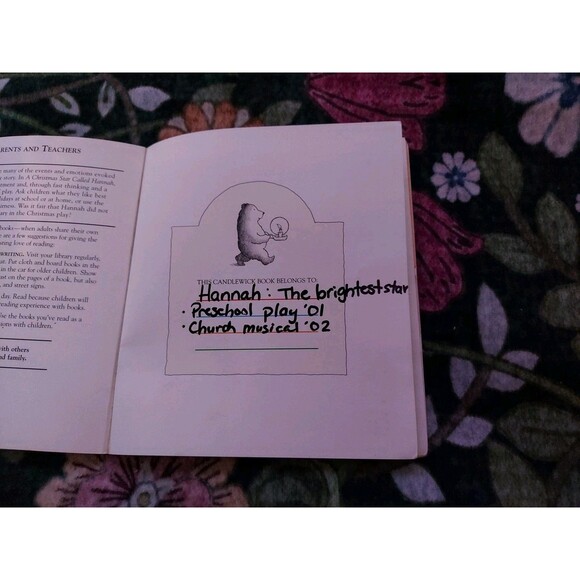 RENTS AND TEACHERS
many of the events and emotions evoked
story. In A Christmas Star Called Hannah,
ment and, through fast thinking and a
play. Ask children what they like best
idays at school or at home, or use the
tness. Was it fair that Hannah did not
are in the Christmas play?
books—when adults share their own
are a few suggestions for giving the
ning love of reading.
WRITING. Visit your library regularly,
Put cloth and board books in the
in the car for older children. Show
on the pages of a book, but also
and street signs.
day. Read because children will
reading experience with books.
se the books you've read as a
ions with children.
with others
and family.
THIS CANDLEWICK BOOK BELONGS TO:
Hannah: The brightest star
• Preschool play '01
• Church musical '02